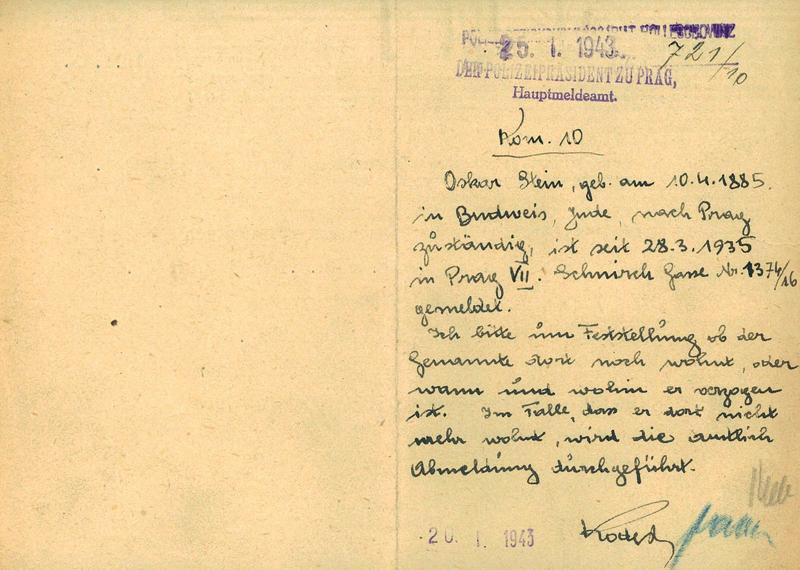 25. 1. 1943
721/10
DER POLIZEIPRÄSIDENT ZU PRAG,
Hauptmeldeamt.
Kom. 10
Oskar Stein, geb. am 10.4.1885.
in Budweis, Jude, nach Prag
zuständig, ist seit 28.3.1935
in Prag VII. Schnirch Gasse Nr. 1374/16
gemeldet.
Ich bitte um Feststellung ob der
Genannte dort noch wohnt, oder
wann und wohin er verzogen
ist. Im Falle, dass er dort nicht
mehr wohnt, wird die amtlich
Abmeldung durchgeführt.
20. 1. 1943